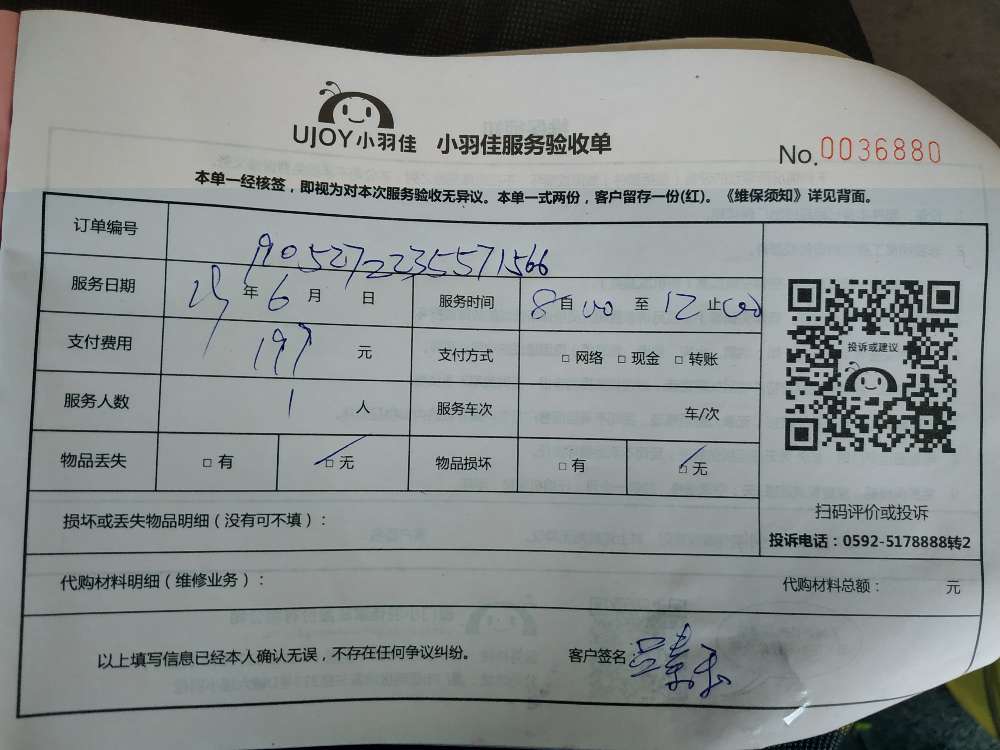 UJOY小羽佳 小羽佳服务验收单
No.0036880
本单一经核签，即视为对本次服务验收无异议。本单一式两份，客户留存一份(红)。《维保须知》详见背面。
订单编号 190527223557 1566
服务日期 年 6 月 日 服务时间 8自00 至 12止00
支付费用 197 元 支付方式 □ 网络 □ 现金 □ 转账
服务人数 1 人 服务车次 车/次
物品丢失 □ 有 □ 无 物品损坏 □ 有 □ 无
投诉或建议
扫码评价或投诉
投诉电话：0592-5178888转2
损坏或丢失物品明细（没有可不填）：
代购材料明细（维修业务）： 代购材料总额： 元
以上填写信息已经本人确认无误，不存在任何争议纠纷。 客户签名：